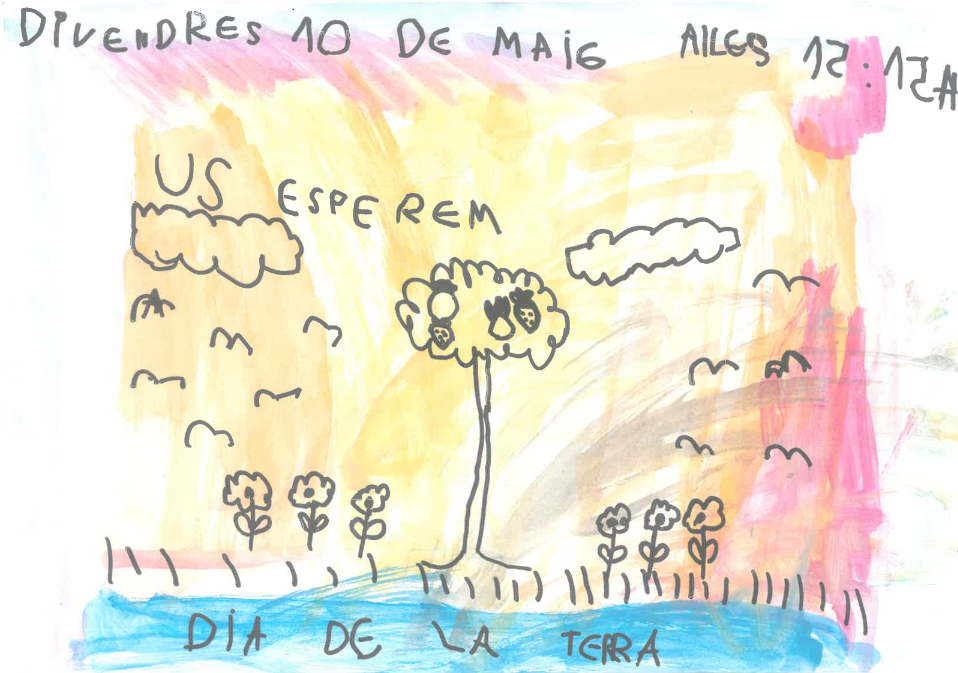 DIVENDRES 10 DE MAIG A LES 12:12H
US ESPEREM
DIA DE LA TERRA